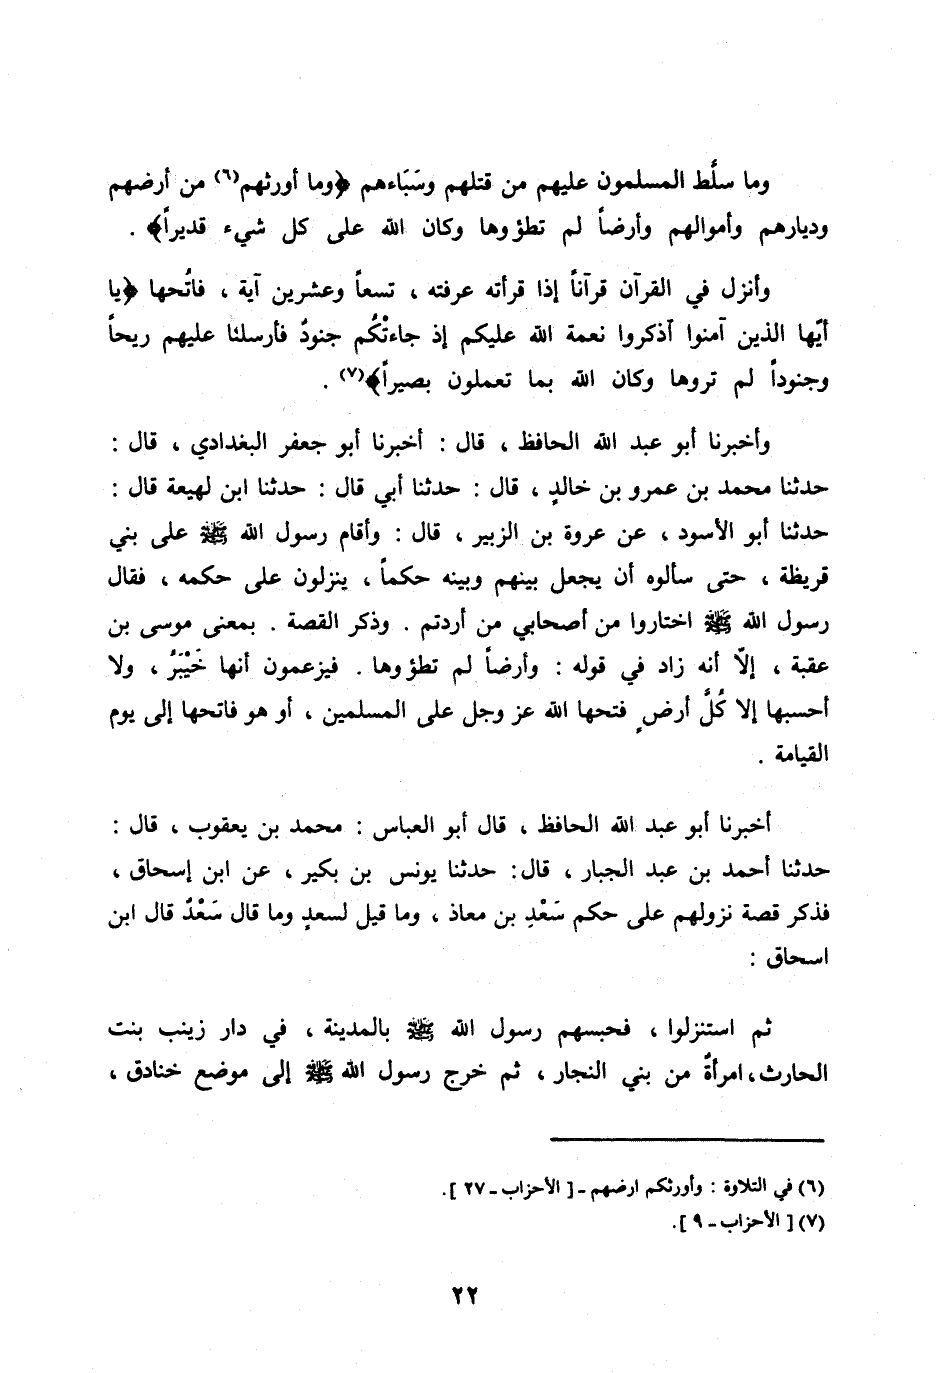 وما سلَّط المسلمون عليهم من قتلهم وسَبَاءهم ﴿وما أورثهم(٦) من أرضهم
وديارهم وأموالهم وأرضاً لم تطؤوها وكان الله على كل شيء قديراً﴾ .
وأنزل في القرآن قرآناً إذا قرأته عرفته ، تسعاً وعشرين آية ، فاتُحها ﴿يا
أيّها الذين آمنوا آذكروا نعمة الله عليكم إذ جاءتْكُم جنودٌ فأرسلنا عليهم ريحاً
وجنوداً لم تروها وكان الله بما تعملون بصيراً﴾(٧) .
وأخبرنا أبو عبد الله الحافظ ، قال : أخبرنا أبو جعفر البغدادي ، قال :
حدثنا محمد بن عمرو بن خالدٍ ، قال : حدثنا أبي قال : حدثنا ابن لهيعة قال :
حدثنا أبو الأسود ، عن عروة بن الزبير ، قال : وأقام رسول الله ﷺ على بني
قريظة ، حتى سألوه أن يجعل بينهم وبينه حكماً ، ينزلون على حكمه ، فقال
رسول الله ﷺ اختاروا من أصحابي من أردتم . وذكر القصة . بمعنى موسى بن
عقبة ، إلّا أنه زاد في قوله : وأرضاً لم تطؤوها . فيزعمون أنها خَيْبَرُ ، ولا
أحسبها إلا كُلَّ أرضٍ فتحها الله عز وجل على المسلمين ، أو هو فاتحها إلى يوم
القيامة .
أخبرنا أبو عبد الله الحافظ ، قال أبو العباس : محمد بن يعقوب ، قال :
حدثنا أحمد بن عبد الجبار ، قال: حدثنا يونس بن بكير ، عن ابن إسحاق ،
فذكر قصة نزولهم على حكم سَعْدِ بن معاذ ، وما قيل لسعدٍ وما قال سَعْدٌ قال ابن
اسحاق :
ثم استنزلوا ، فحبسهم رسول الله ﷺ بالمدينة ، في دار زينب بنت
الحارث، امرأةٌ من بني النجار ، ثم خرج رسول الله ﷺ إلى موضع خنادق ،
(٦) في التلاوة : وأورثكم ارضهم ـ [ الأحزاب ـ ٢٧ ].
(٧) [ الأحزاب ـ ٩ ].
٢٢